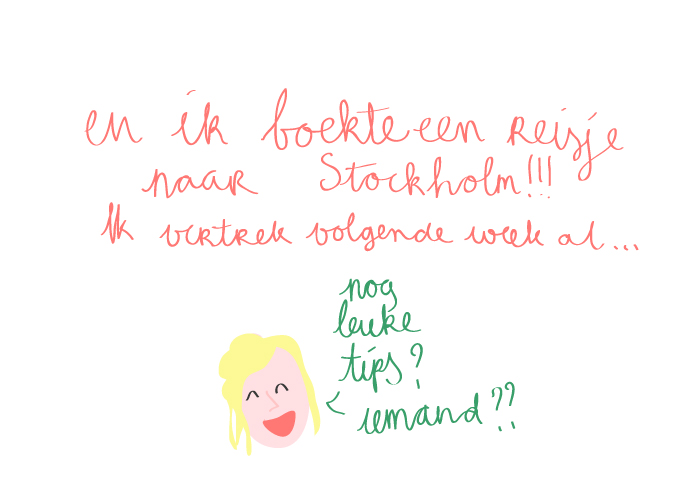 en ik boekte een reisje
naar Stockholm!!!
Ik vertrek volgende week al...
nog
leuke
tips?
iemand??